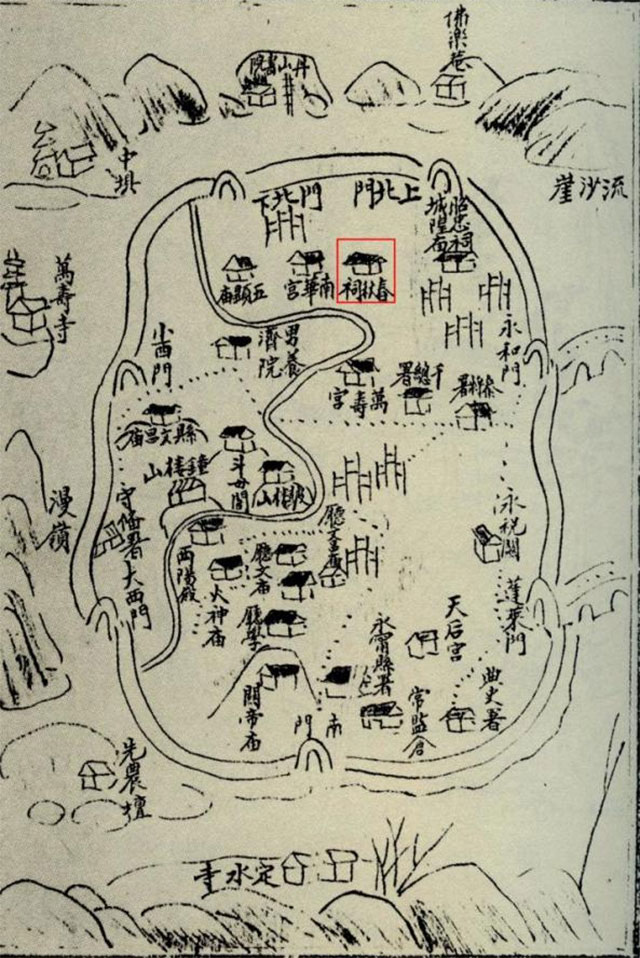 佛樂菴
丹山書院
中壩
流沙崖
上北門
下北門
昭忠祠
城隍庙
春秋祠
南華宮
五顯庙
萬壽寺
永和門
小西門
男養濟院
千總署
參將署
萬壽宮
縣文昌庙
鐘樓山
斗母閣
鼓樓山
漫嶺
守備署
大西門
火神庙
廳文庙
廳學
永祝閣
蓬萊門
天后宮
永甯縣署
典史署
常監倉
關帝庙
南門
先農壇
定水寺